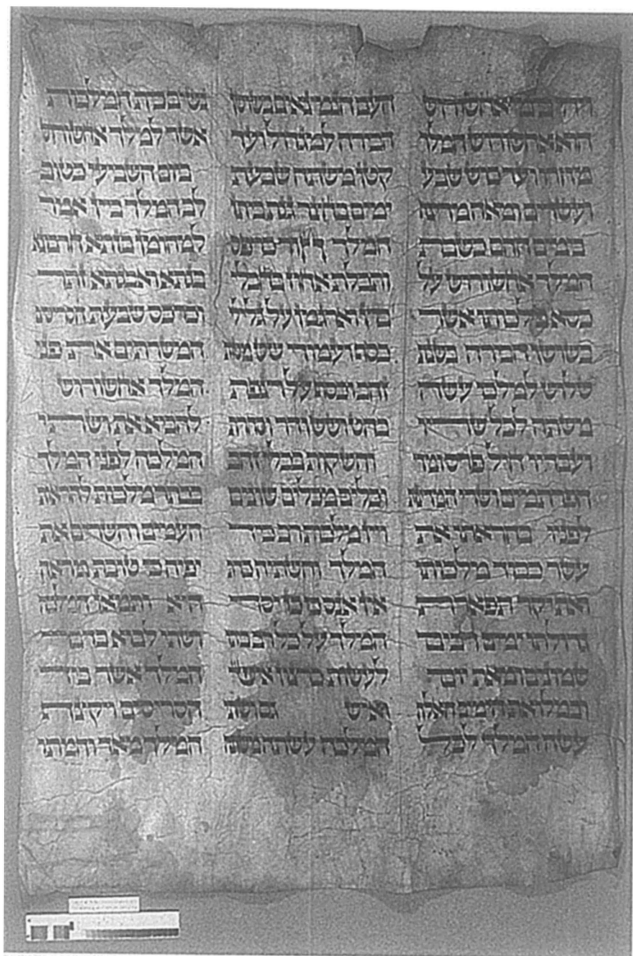 ויהי בימי אחשורוש
הוא אחשורוש המלך
מהדו ועד כוש שבע
ועשרים ומאה מדינה
בימים ההם כשבת
המלך אחשורוש על
כסא מלכותו אשר
בשושן הבירה בשנת
שלוש למלכו עשה
משתה לכל שריו
ועבדיו חיל פרס ומדי
הפרתמים ושרי המדינות
לפניו בהראתו את
עשר כבוד מלכותו
ואת יקר תפארת
גדולתו ימים רבים
שמונים ומאת יום
ובמלואת הימים האלה
עשה המלך לכל
העם הנמצאים בשושן
הבירה למגדול ועד
קטן משתה שבעת
ימים בחצר גנת ביתן
המלך חור כרפס
ותכלת אחוז בחבלי
בוץ וארגמן על גלילי
כסף ועמודי שש מטות
זהב וכסף על רצפת
בהט ושש ודר וסחרת
והשקות בכלי זהב
וכלים מכלים שונים
ויין מלכות רב כיד
המלך והשתיה כדת
אין אנס כי כן יסד
המלך על כל רב ביתו
לעשות כרצון איש
ואיש גם ושתי
המלכה עשתה משתה
נשים בית המלכות
אשר למלך אחשורוש
ביום השביעי כטוב
לב המלך ביין אמר
למהומן בזתא חרבונא
בגתא ואבגתא זתר
וכרכס שבעת הסריסים
המשרתים את פני
המלך אחשורוש
להביא את ושתי
המלכה לפני המלך
בכתר מלכות להראות
העמים והשרים את
יפיה כי טובת מראה
היא ותמאן המלכה
ושתי לבוא בדבר
המלך אשר ביד
הסריסים ויקצף
המלך מאד וחמתו